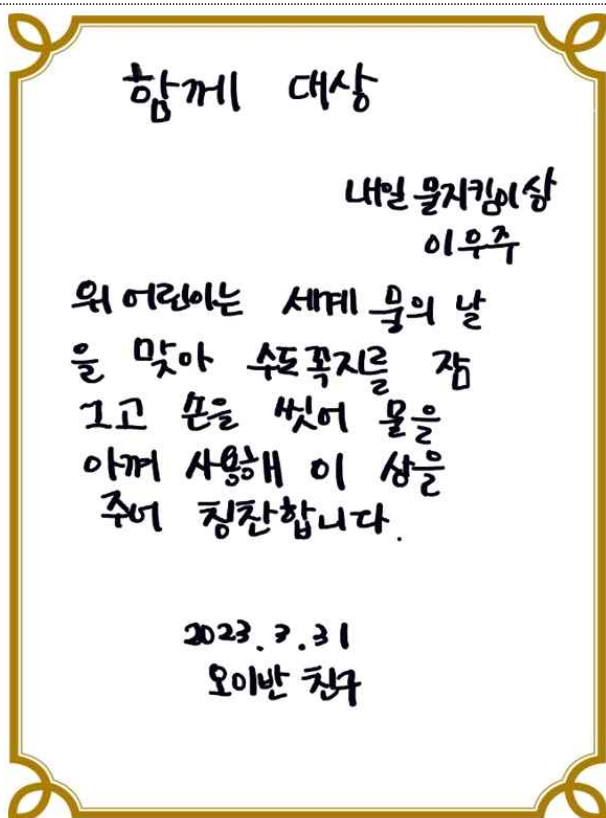 함께 대상
내일 물지킴이상
이우주
위 어린이는 세계 물의 날
을 맞아 수도꼭지를 잠
그고 손을 씻어 물을
아껴 사용해 이 상을
주어 칭찬합니다.
2023.3.31
오이반 친구